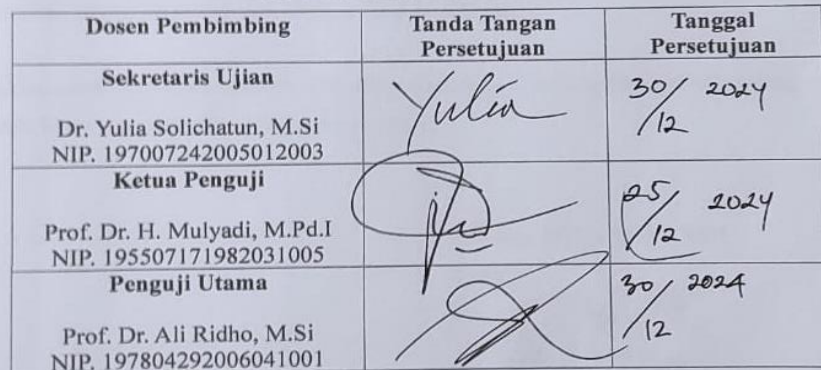 Dosen Pembimbing
Tanda Tangan
Persetujuan
Tanggal
Persetujuan
Sekretaris Ujian
Dr. Yulia Solichatun, M.Si
NIP. 197007242005012003
Yulia
30/12 2024
Ketua Penguji
Prof. Dr. H. Mulyadi, M.Pd.I
NIP. 195507171982031005
25/12 2024
Penguji Utama
Prof. Dr. Ali Ridho, M.Si
NIP. 197804292006041001
30/12 2024